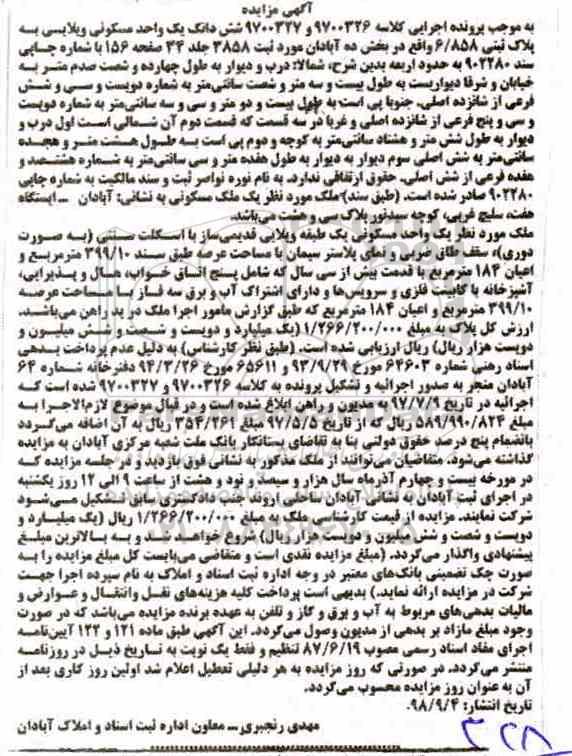 آگهی مزایده
به موجب پرونده اجرایی کلاسه ۹۷۰۰۳۲۶ و ۹۷۰۰۳۲۷ شش دانگ یک واحد مسکونی ویلایی به
پلاک ثبتی ۶/۸۵۸ واقع در بخش ده آبادان مورد ثبت ۳۸۵۸ جلد ۳۴ صفحه ۱۵۶ با شماره چاپی
سند ۹۰۲۲۸۰ به حدود اربعه بدین شرح، شمالا: درب و دیوار به طول چهارده و شصت صدم متر به
خیابان و شرقا دیواریست به طول بیست و سه متر و شصت سانتی‌متر به شماره دویست و سی و شش
فرعی از شانزده اصلی. جنوبا پی است به طول بیست و دو متر و سی و سه سانتی‌متر به شماره دویست
و سی و پنج فرعی از شانزده اصلی و غربا در سه قسمت که قسمت دوم آن شمالی است اول درب و
دیوار به طول شش متر و هشتاد سانتی‌متر به کوچه و دوم پی است به طول هشت متر و هجده
سانتی‌متر به شش اصلی سوم دیوار به دیوار به طول هفده متر و سی سانتی‌متر به شماره هشتصد و
هفده فرعی از شش اصلی. حقوق ارتفاقی ندارد. به نام نوره نواصر ثبت و سند مالکیت به شماره چاپی
۹۰۲۲۸۰ صادر شده است. (طبق سند) ملک مورد نظر یک ملک مسکونی به نشانی: آبادان ــ ایستگاه
هفت، سلیچ غربی، کوچه سیدنور پلاک سی و هشت می‌باشد.
ملک مورد نظر یک واحد مسکونی یک طبقه ویلایی قدیمی‌ساز با اسکلت سنتی (به صورت
دوری)، سقف طاق ضربی و نمای پلاستر سیمان با مساحت عرصه طبق سند ۳۹۹/۱۰ مترمربع و
اعیان ۱۸۴ مترمربع با قدمت بیش از سی سال که شامل پنج اتاق خواب، هال و پذیرایی،
آشپزخانه با کابینت فلزی و سرویس‌ها و دارای اشتراک آب و برق سه فاز با مساحت عرصه
۳۹۹/۱۰ مترمربع و اعیان ۱۸۴ مترمربع که طبق گزارش مامور اجرا ملک در ید راهن می‌باشد.
ارزش کل پلاک به مبلغ ۱/۲۶۶/۲۰۰/۰۰۰ (یک میلیارد و دویست و شصت و شش میلیون و
دویست هزار ریال) ریال ارزیابی شده است. (طبق نظر کارشناس) به دلیل عدم پرداخت بدهی
اسناد رهنی شماره ۶۴۶۰۳ مورخ ۹۳/۹/۲۹ و ۶۵۶۱۱ مورخ ۹۴/۳/۲۶ دفترخانه شماره ۶۴
آبادان منجر به صدور اجرائیه و تشکیل پرونده به کلاسه ۹۷۰۰۳۲۶ و ۹۷۰۰۳۲۷ شده است که
اجرائیه در تاریخ ۹۷/۷/۹ به مدیون و راهن ابلاغ شده است و در قبال موضوع لازم‌الاجرا به
مبلغ ۵۸۹/۹۹۰/۸۲۴ ریال که از تاریخ ۹۷/۵/۵ مبلغ ۳۵۴/۲۶۱ ریال به آن اضافه می‌گردد
بانضمام پنج درصد حقوق دولتی بنا به تقاضای بستانکار بانک ملت شعبه مرکزی آبادان به مزایده
گذاشته می‌شود. متقاضیان می‌توانند از ملک مذکور به نشانی فوق بازدید و در جلسه مزایده که
در مورخه بیست و چهارم آذرماه سال هزار و سیصد و نود و هشت از ساعت ۹ الی ۱۲ روز یکشنبه
در اجرای ثبت آبادان به نشانی آبادان ساحلی اروند جنب دادگستری سابق تشکیل می‌شود
شرکت نمایند. مزایده از قیمت کارشناسی ملک به مبلغ ۱/۲۶۶/۲۰۰/۰۰۰ ریال (یک میلیارد و
دویست و شصت و شش میلیون و دویست هزار ریال) شروع خواهد شد و به بالاترین مبلغ
پیشنهادی واگذار می‌گردد. (مبلغ مزایده نقدی است و متقاضی می‌بایست کل مبلغ مزایده را به
صورت چک تضمینی بانک‌های معتبر در وجه اداره ثبت اسناد و املاک به نام سپرده اجرا جهت
شرکت در مزایده ارائه نماید.) بدیهی است پرداخت کلیه هزینه‌های نقل وانتقال و عوارض و
مالیات بدهی‌های مربوط به آب و برق و گاز و تلفن به عهده برنده مزایده می‌باشد که در صورت
وجود مبلغ مازاد بر بدهی از مدیون وصول می‌گردد. این آگهی طبق ماده ۱۲۱ و ۱۲۲ آیین‌نامه
اجرای مفاد اسناد رسمی مصوب ۸۷/۶/۱۹ تنظیم و فقط یک نوبت به تاریخ ذیل در روزنامه
منتشر می‌گردد. در صورتی که روز مزایده به هر دلیلی تعطیل اعلام شد اولین روز کاری بعد از
آن به عنوان روز مزایده محسوب می‌گردد.
تاریخ انتشار: ۹۸/۹/۴.
مهدی رنجبری ــ معاون اداره ثبت اسناد و املاک آبادان